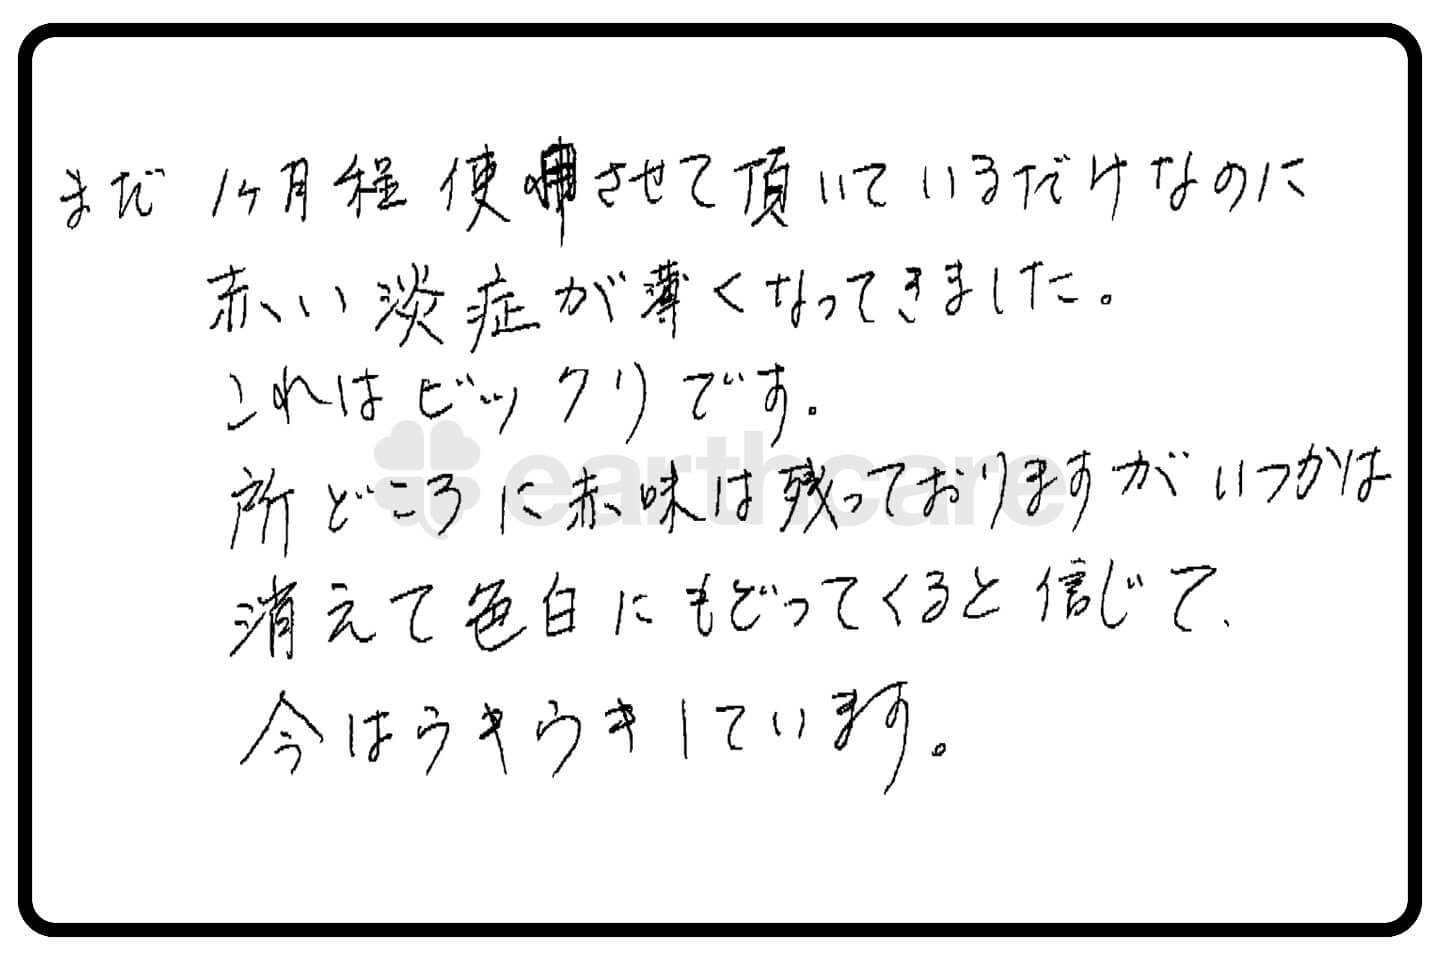 まだ 1ヶ月程使用させて頂いているだけなのに
赤い淡症が薄くなってきました。
これはビックリです。
earthcare
所どころに赤味は残っておりますがいつかは
消えて色白にもどってくると信じて、
今はウキウキしています。